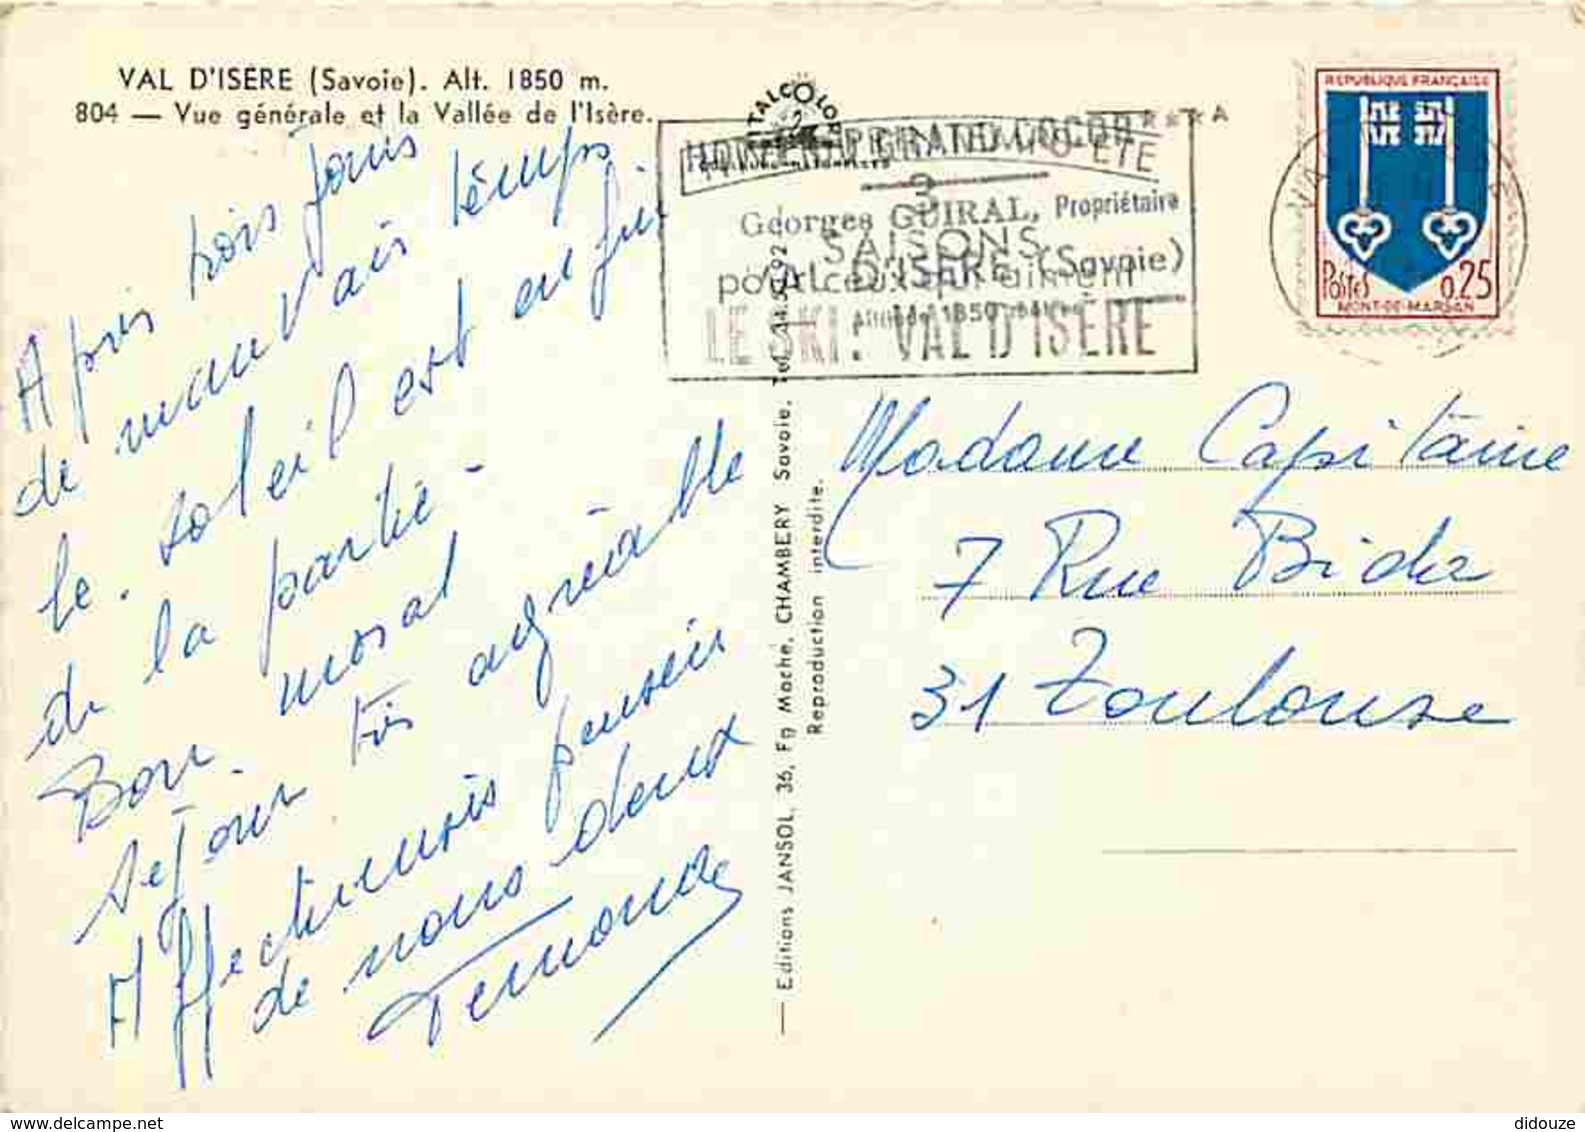 VAL D'ISÈRE (Savoie). Alt. 1850 m.
804 — Vue générale et la Vallée de l'Isère.
ITALCOLOR
Après trois jours
de mauvais temps
le soleil est enfin
de la partie -
Bon moral
séjour très agréable
Affectueuses pensées
de nous deux
HOTEL GRAND COCOR ***A
ÉTÉ
3
Georges GUIRAL, Propriétaire
SAISONS
VAL D'ISÈRE (Savoie)
pour ceux qui aiment
Altitude 1850
LE SKI : VAL D'ISÈRE
RÉPUBLIQUE FRANÇAISE
POSTES 0,25
MONT-DE-MARSAN
— Editions JANSOL, 36, Fg Mache, CHAMBERY Savoie.
Reproduction interdite.
Madame Capitaine
7 Rue Bida
31 Toulouse
didouze